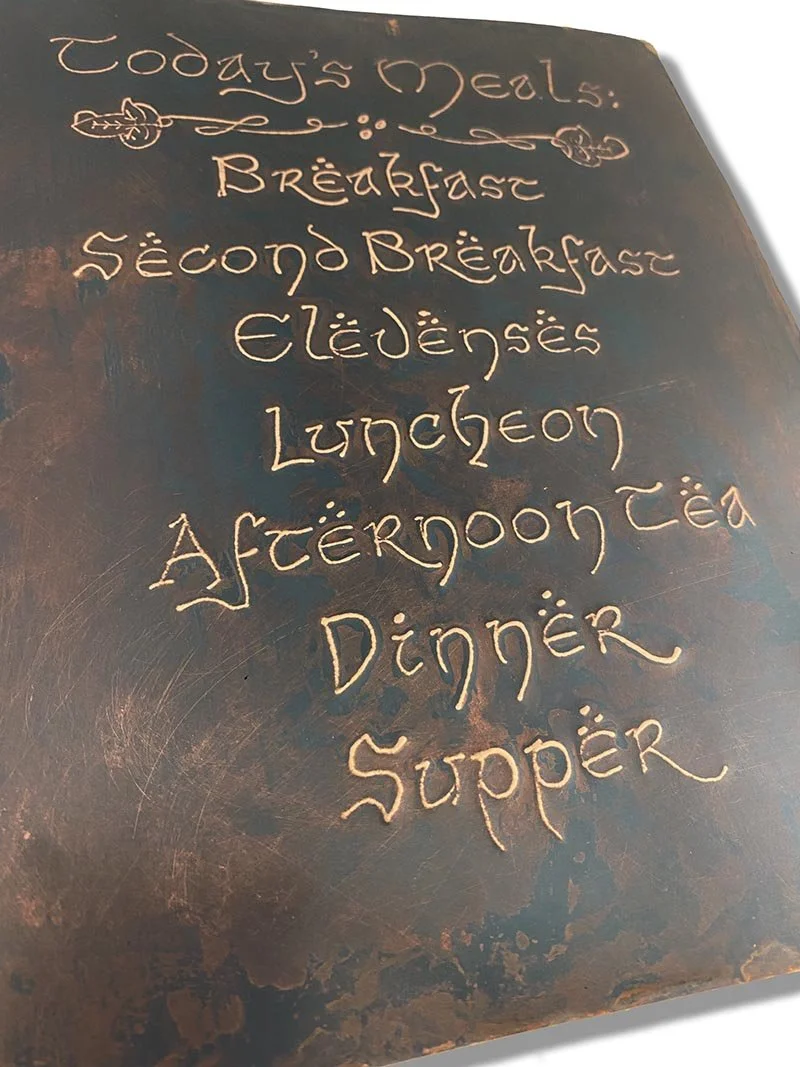 Today's Meals:
Brëakfast
Sëcond Brëakfast
Elëvënsës
Luncheon
Aftërnoon Tëa
Dinnër
Suppër